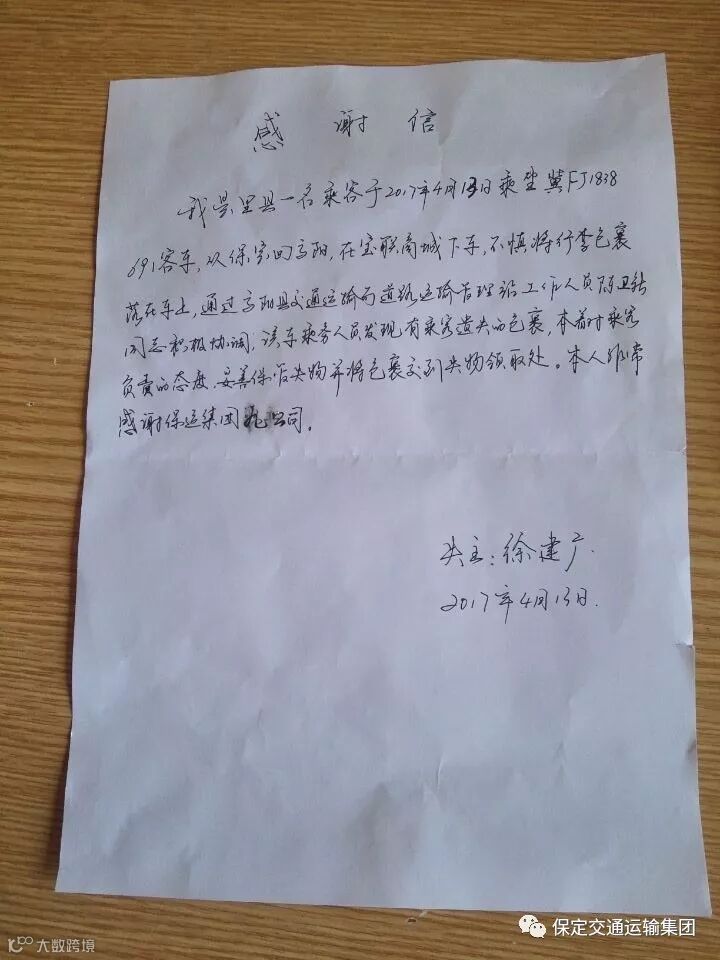 感谢信
我是里县一名乘客于2017年4月13日乘坐冀FJ1838
691客车,从保定回高阳,在宝联商城下车,不慎将行李包裹
落在车上,通过高阳县交通运输局道路运输管理站工作人员陈卫
同志积极协调,该车乘务人员发现有乘客遗失的包裹,本着对乘客
负责的态度,妥善保管失物并将包裹交到失物领取处。本人非常
感谢保运集团九公司。
失主:徐建广.
2017年4月13日.
保定交通运输集团
大数跨境